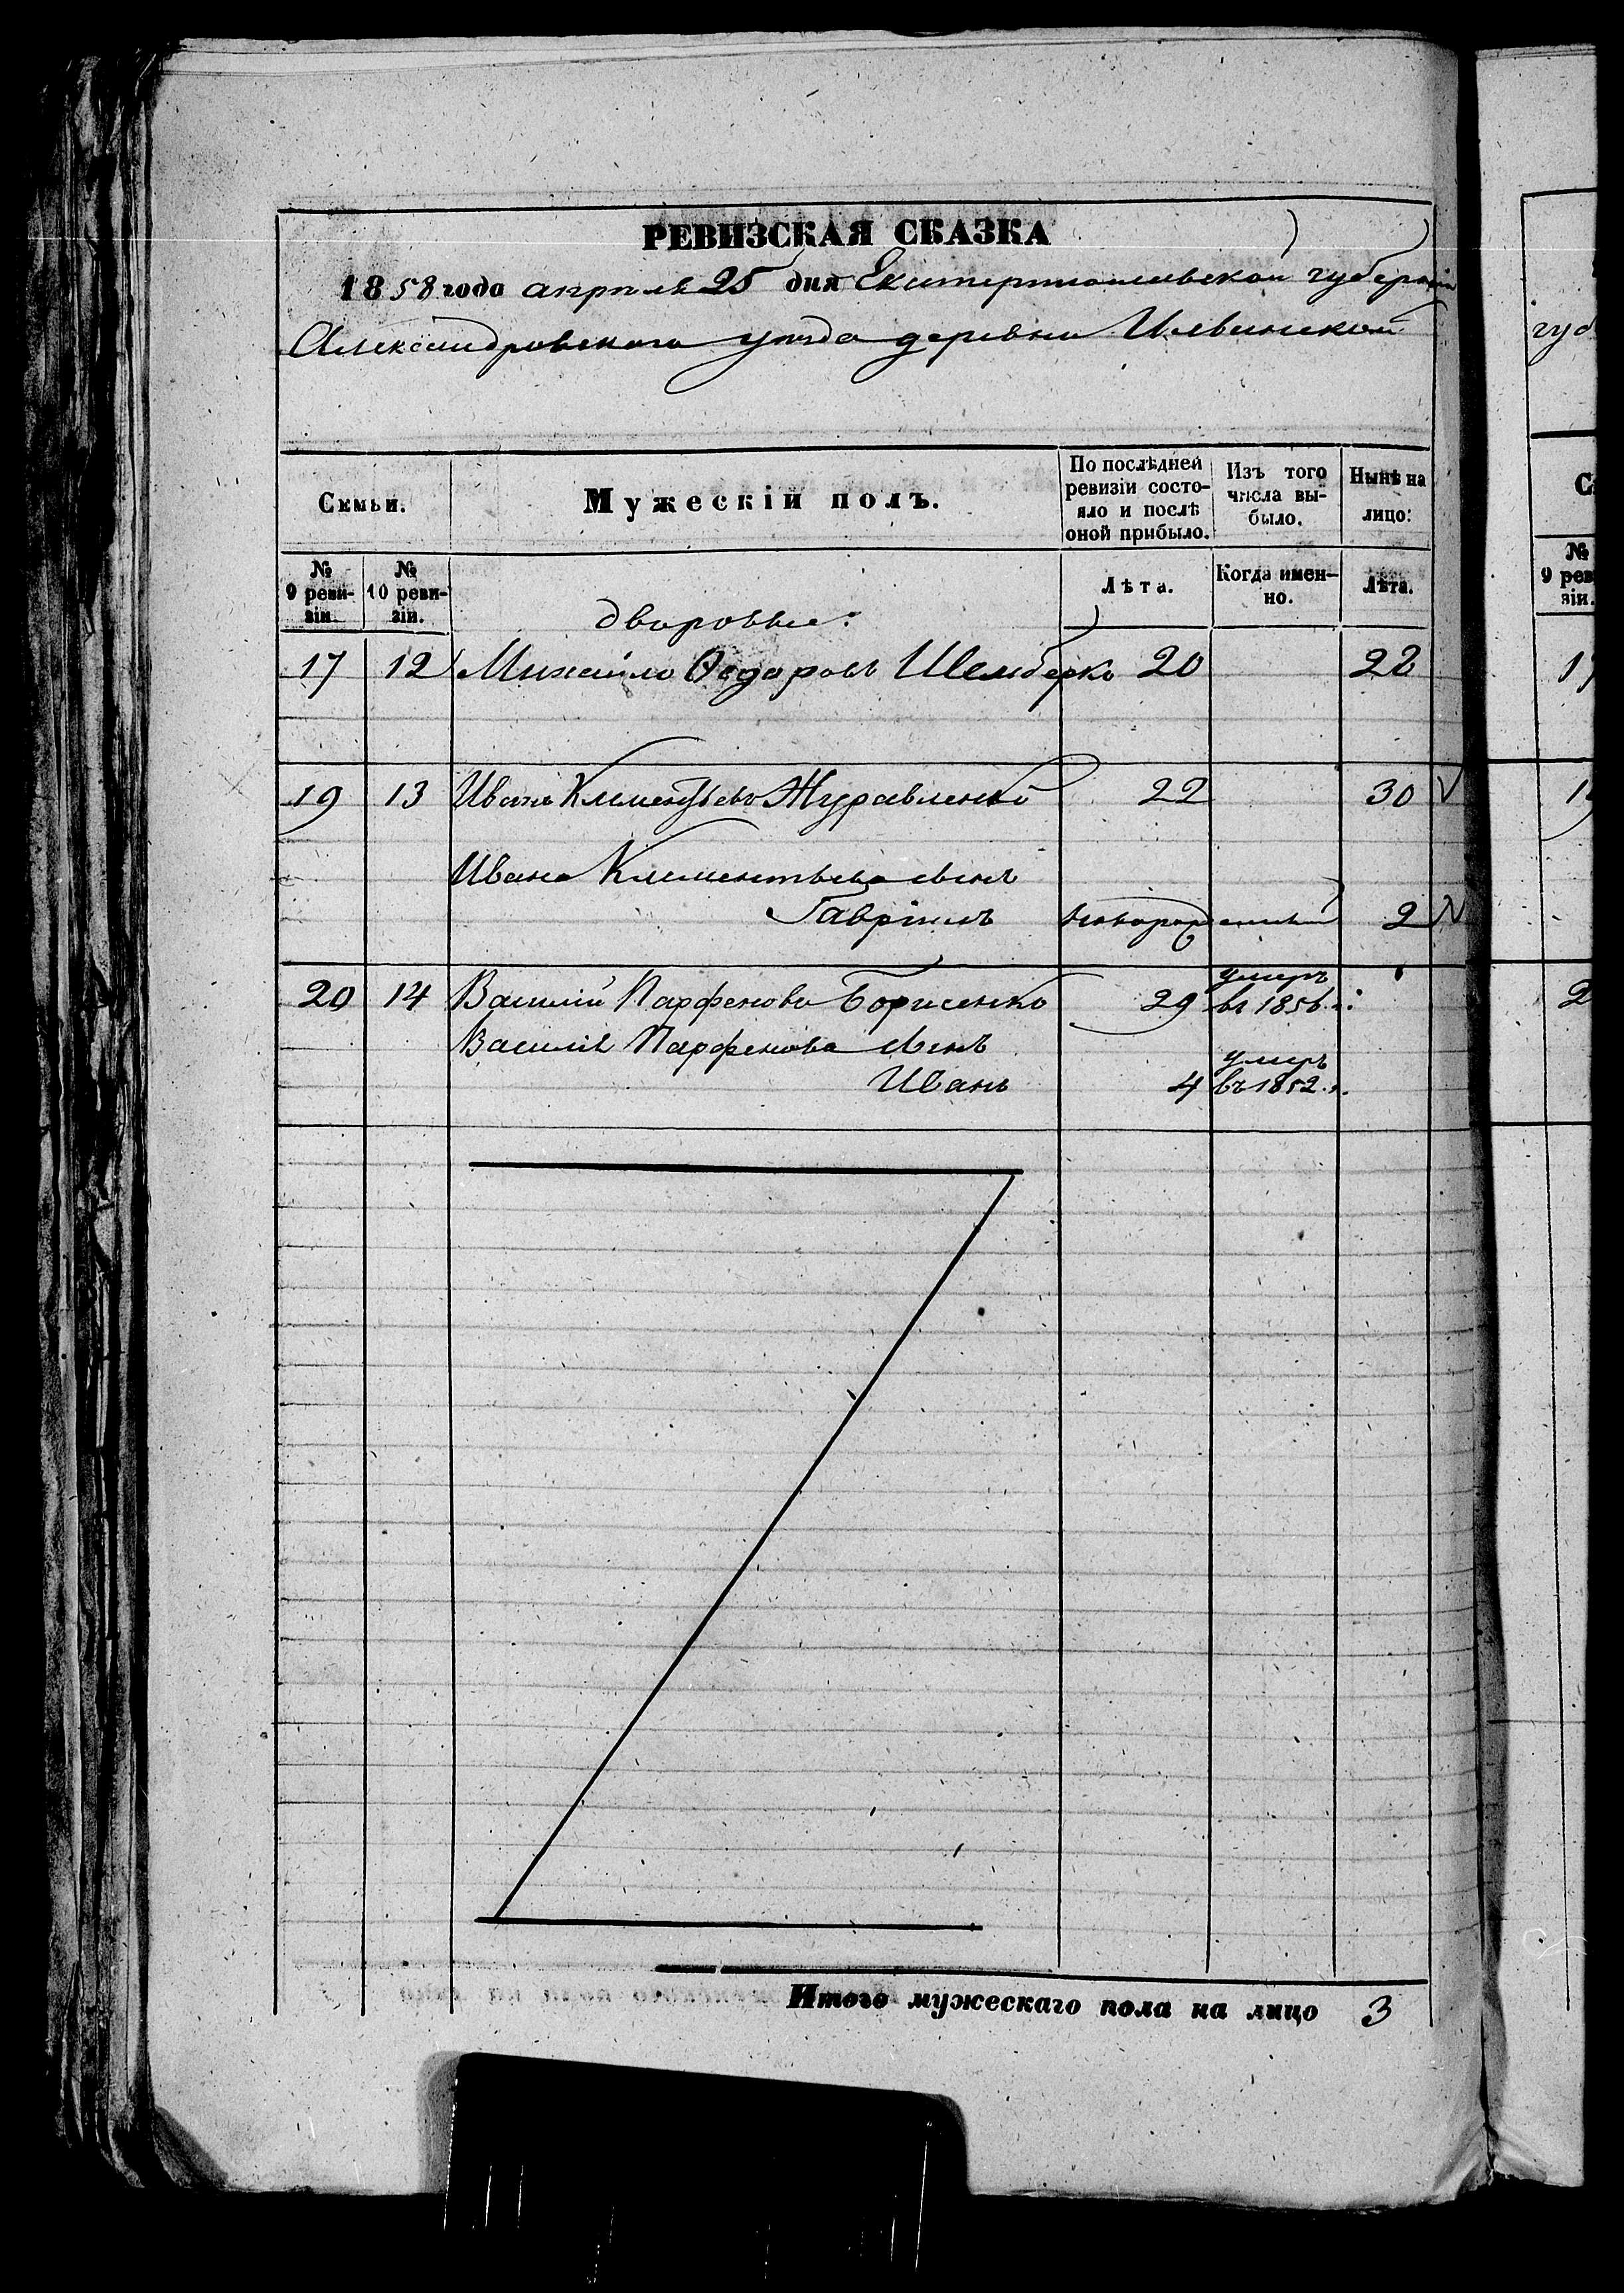 РЕВИЗСКАЯ СКАЗКА
1858 года апреля 25 дня Екатеринославской губернии
Александровского уезда деревни
Семьи. Мужескій полъ. По послѣдней ревизіи состояло и послѣ оной прибыло. Изъ того числа выбыло. Нынѣ на лицо:
№ 9 ревизіи. № 10 ревизіи. Лѣта. Когда именно. Лѣта.
дворовые:
17 12 Михайло Ѳедоровъ 20 28
19 13 Иванъ Клементьевъ Журавленко 22 30
Ивана Клементьева сынъ
Гавріилъ новорожденный 2
20 14 Василій Парфеновъ Борисенко 29 умеръ въ 1856 г.
Василія Парфенова сынъ
Иванъ 4 умеръ въ 1852 г.
Итого мужескаго пола на лицо 3